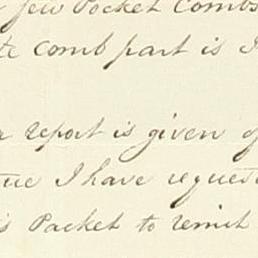 few Pocket Combs
comb part is I
report is given of
I have request
Packet to remit